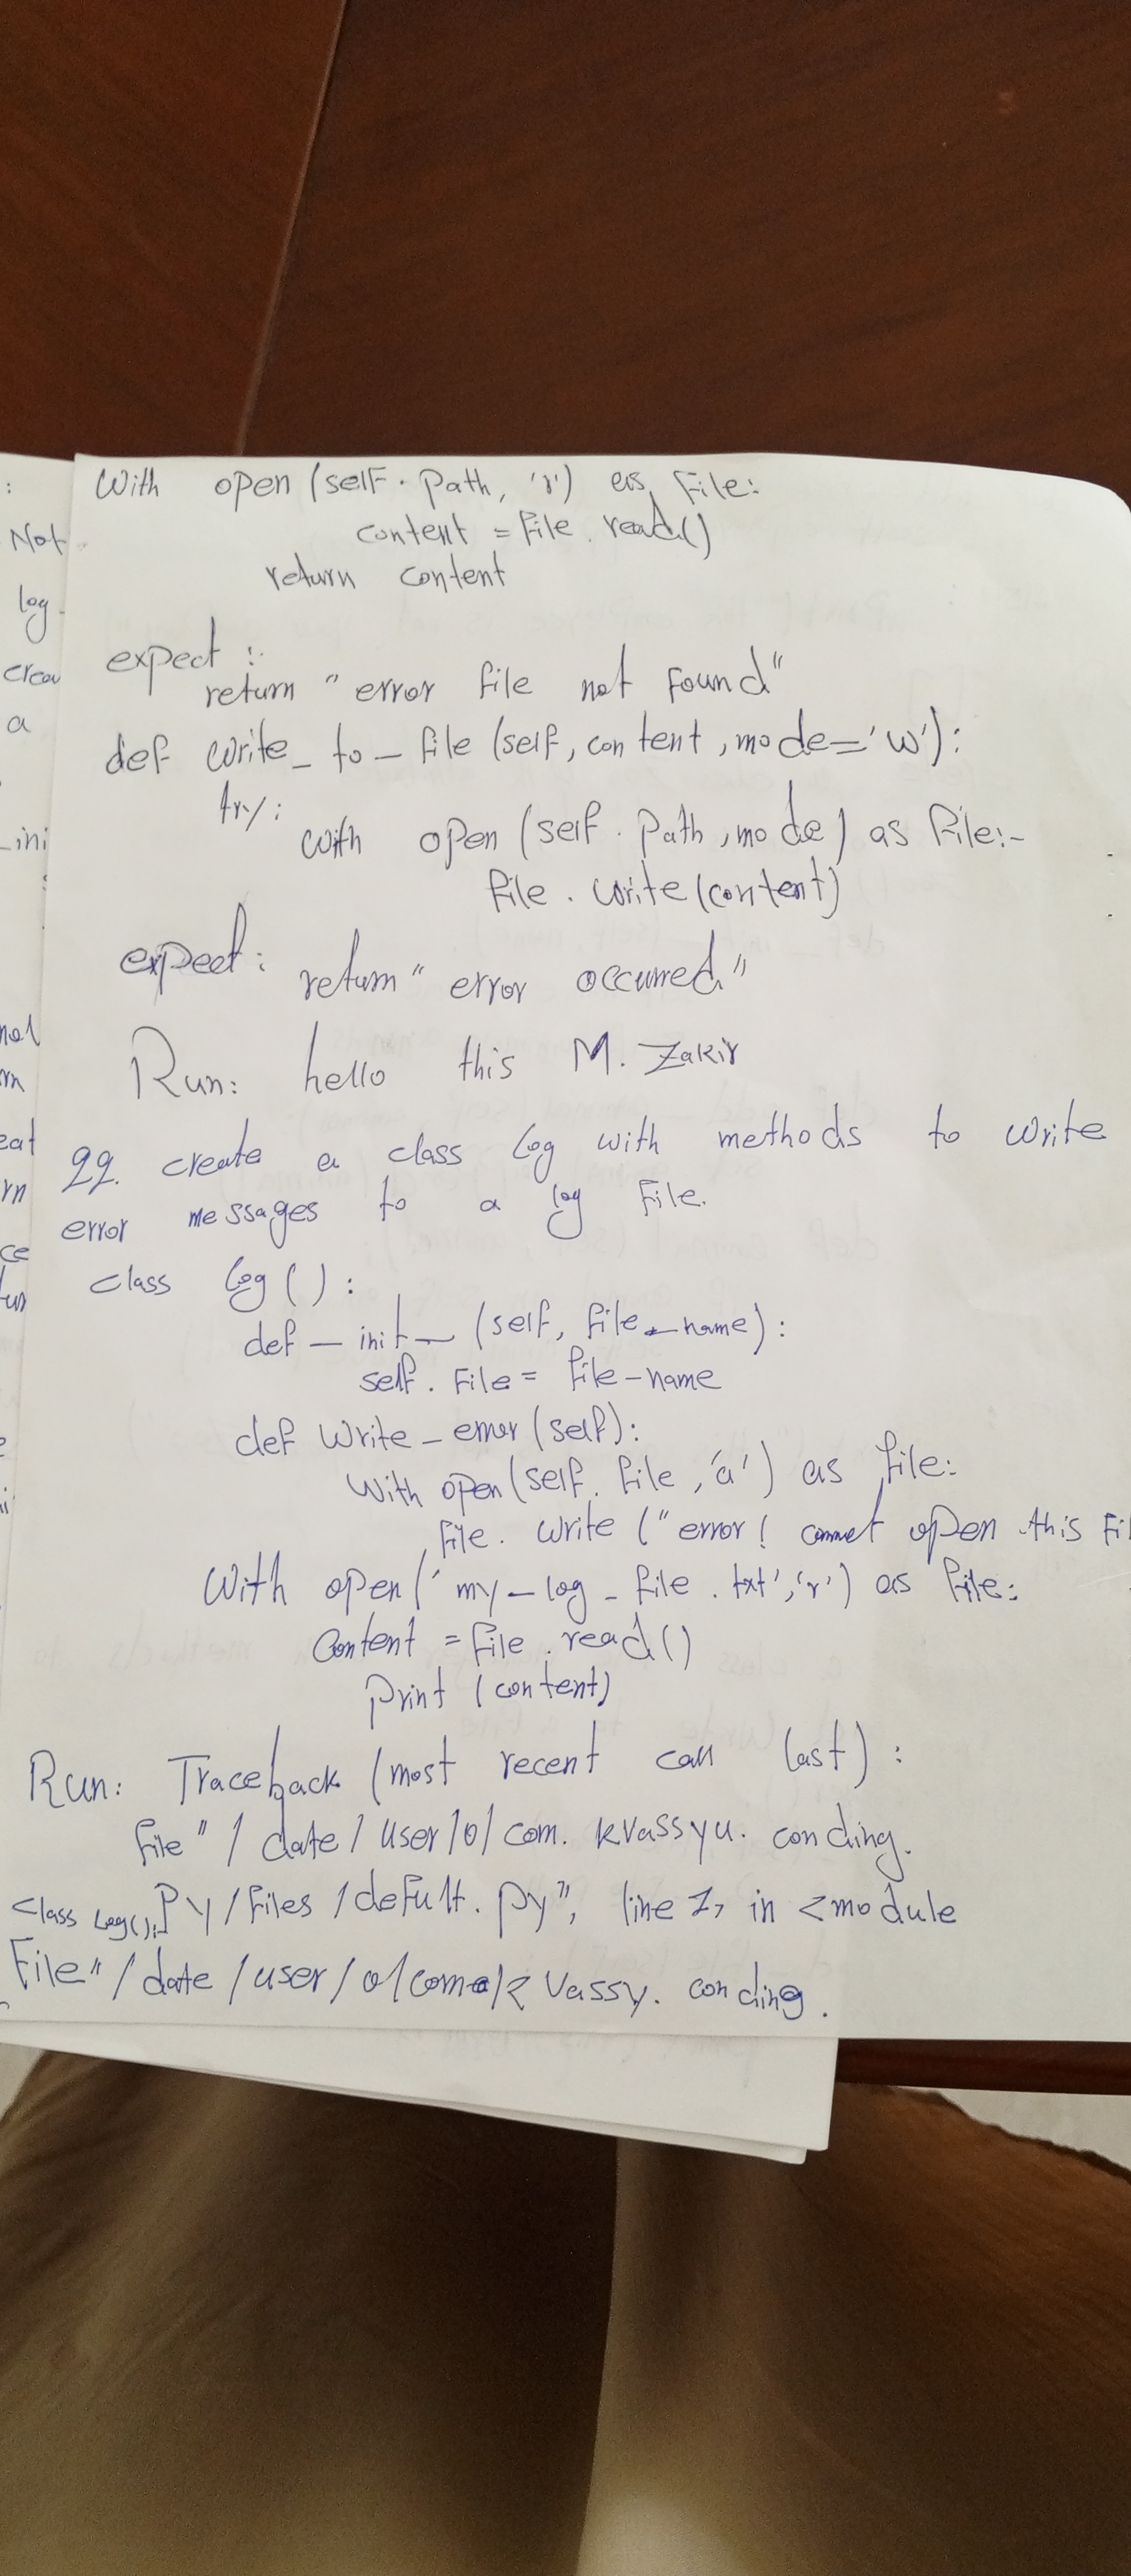 With open (self. path, 'r') as file:
content = file. read()
return content
expect :
return "error file not found"
def write_to_file (self, content, mode='w'):
try:
with open (self. path, mode) as file:-
file. write (content)
expect:
return "error occurred"
Run: hello this M. Zakir
22. create a class log with methods to write
error messages to a log file.
class log():
def _init_ (self, file_name):
self. file = file_name
def write_error (self):
with open (self. file, 'a') as file:
file. write ("error! cannot open this Fil
With open ('my_log_file.txt','r') as file:
Content = file. read()
print (content)
Run: Traceback (most recent call last):
file "/date/user/0/com. kvassyu. conding.
class Log(): py/files/defult. py", line 7, in <module
File "/date/user/o/com
Vassy. conding.
:
Not
log
a
_ini